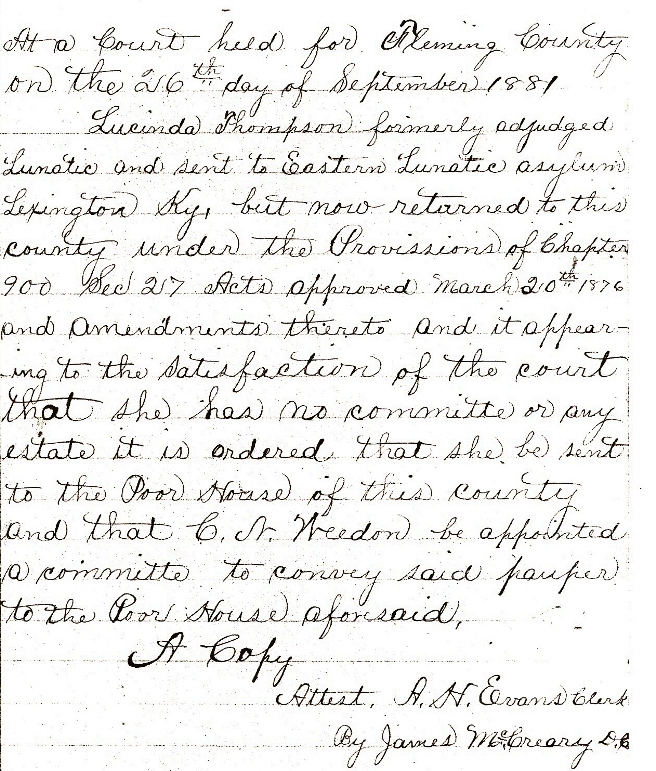 At a Court held for Fleming County
on the 26th day of September 1881
Lucinda Thompson formerly adjudged
Lunatic and sent to Eastern Lunatic asylum
Lexington Ky, but now returned to this
county under the Provissions of Chapter
900 Sec 27 Acts approved March 20th 1876
and amendments thereto and it appear-
-ing to the satisfaction of the court
that she has no committe or any
estate it is ordered that she be sent
to the Poor House of this county
and that C. N. Weedon be appointed
a committe to convey said pauper
to the Poor House aforesaid,
A Copy
Attest. A. H. Evans Clerk
By James McCreary D.C